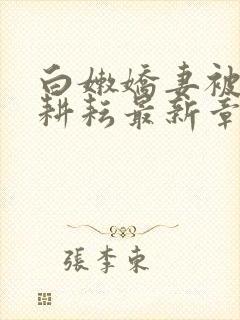 白嫩嬌妻被
耕耘最新章
張李東